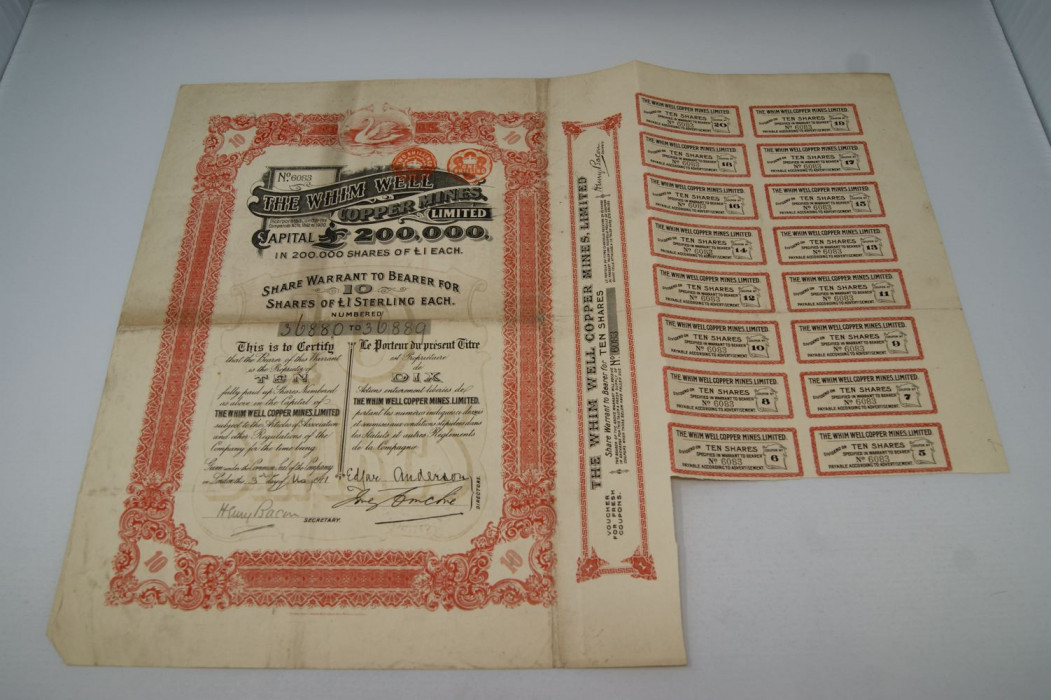 10
10
No 6083
THE WHIM WELL
COPPER MINES,
LIMITED
CAPITAL £200,000,
IN 200,000 SHARES OF £1 EACH.
SHARE WARRANT TO BEARER FOR
10
SHARES OF £1 STERLING EACH.
NUMBERED
36880 TO 36889
This is to Certify
that the Bearer of this Warrant
is the Proprietor of
TEN
fully paid up Shares Numbered
as above in the Capital of
THE WHIM WELL COPPER MINES, LIMITED
subject to the Articles of Association
and other Regulations of the
Company for the time being
Given under the Common Seal of the Company
Le Porteur du présent Titre
est Propriétaire
de
DIX
Actions entièrement libérées de
THE WHIM WELL COPPER MINES, LIMITED
portant les numéros indiqués ci dessus
et soumises aux conditions stipulées dans
les Statuts et autres Règlements
de la Compagnie
Edgar Anderson
DIRECTORS.
Henry Bacon
SECRETARY.
10
10
THE WHIM WELL COPPER MINES, LIMITED
Share Warrant to Bearer for TEN SHARES
VOUCHER
FOR FRESH
COUPONS.
Henry Bacon
THE WHIM WELL COPPER MINES, LIMITED.
TEN SHARES
SPECIFIED IN WARRANT TO BEARER
No 6083
PAYABLE ACCORDING TO ADVERTISEMENT
20
THE WHIM WELL COPPER MINES, LIMITED.
TEN SHARES
SPECIFIED IN WARRANT TO BEARER
No 6083
PAYABLE ACCORDING TO ADVERTISEMENT
19
THE WHIM WELL COPPER MINES, LIMITED.
TEN SHARES
SPECIFIED IN WARRANT TO BEARER
No 6083
PAYABLE ACCORDING TO ADVERTISEMENT
18
THE WHIM WELL COPPER MINES, LIMITED.
TEN SHARES
SPECIFIED IN WARRANT TO BEARER
No 6083
PAYABLE ACCORDING TO ADVERTISEMENT
17
THE WHIM WELL COPPER MINES, LIMITED.
TEN SHARES
SPECIFIED IN WARRANT TO BEARER
No 6083
PAYABLE ACCORDING TO ADVERTISEMENT
16
THE WHIM WELL COPPER MINES, LIMITED.
TEN SHARES
SPECIFIED IN WARRANT TO BEARER
No 6083
PAYABLE ACCORDING TO ADVERTISEMENT
15
THE WHIM WELL COPPER MINES, LIMITED.
TEN SHARES
SPECIFIED IN WARRANT TO BEARER
No 6083
PAYABLE ACCORDING TO ADVERTISEMENT
14
THE WHIM WELL COPPER MINES, LIMITED.
TEN SHARES
SPECIFIED IN WARRANT TO BEARER
No 6083
PAYABLE ACCORDING TO ADVERTISEMENT
13
THE WHIM WELL COPPER MINES, LIMITED.
TEN SHARES
SPECIFIED IN WARRANT TO BEARER
No 6083
PAYABLE ACCORDING TO ADVERTISEMENT
12
THE WHIM WELL COPPER MINES, LIMITED.
TEN SHARES
SPECIFIED IN WARRANT TO BEARER
No 6083
PAYABLE ACCORDING TO ADVERTISEMENT
11
THE WHIM WELL COPPER MINES, LIMITED.
TEN SHARES
SPECIFIED IN WARRANT TO BEARER
No 6083
PAYABLE ACCORDING TO ADVERTISEMENT
10
THE WHIM WELL COPPER MINES, LIMITED.
TEN SHARES
SPECIFIED IN WARRANT TO BEARER
No 6083
PAYABLE ACCORDING TO ADVERTISEMENT
9
THE WHIM WELL COPPER MINES, LIMITED.
TEN SHARES
SPECIFIED IN WARRANT TO BEARER
No 6083
PAYABLE ACCORDING TO ADVERTISEMENT
8
THE WHIM WELL COPPER MINES, LIMITED.
TEN SHARES
SPECIFIED IN WARRANT TO BEARER
No 6083
PAYABLE ACCORDING TO ADVERTISEMENT
7
THE WHIM WELL COPPER MINES, LIMITED.
TEN SHARES
SPECIFIED IN WARRANT TO BEARER
No 6083
PAYABLE ACCORDING TO ADVERTISEMENT
6
THE WHIM WELL COPPER MINES, LIMITED.
TEN SHARES
SPECIFIED IN WARRANT TO BEARER
No 6083
PAYABLE ACCORDING TO ADVERTISEMENT
5